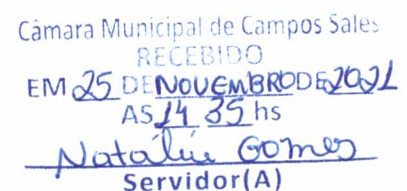 Câmara Municipal de Campos Sales
RECEBIDO
EM 25 DE NOVEMBRO DE 2021
AS 14 35 hs
Natália Gomes
Servidor(A)